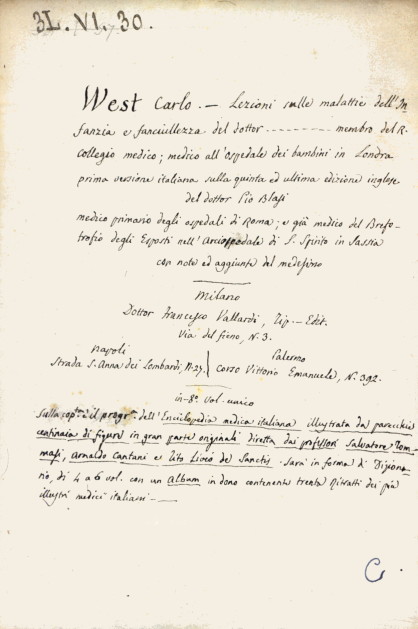 3L. VI. 30.
West Carlo. — Lezioni sulle malattie dell'In
fanzia e fanciullezza del dottor - - - - - - - - membro del R.
collegio medico; medico all'ospedale dei bambini in Londra
prima versione italiana sulla quinta ed ultima edizione inglese
del dottor Pio Blasi
medico primario degli ospedali di Roma; e già medico del Brefo-
trofio degli Esposti nell'Arciospedale di S. Spirito in Sassia
con note ed aggiunte del medesimo
Milano
Dottor Francesco Vallardi, Tip. — Edit.
Via del fieno, N. 3.
Napoli
Palermo
Strada S. Anna dei Lombardi, N. 27. Corso Vittorio Emanuele, N. 392.
in-8.° Vol. unico
Sulla cop.na è il progr.a dell'Enciclopedia medica italiana illustrata da parecchie
centinaia di figure in gran parte originali diretta dai professori Salvatore Tom-
masi, Arnaldo Cantani e Tito Livio de Sanctis. Sarà in forma di Diziona-
rio, di 4 a 6 vol. con un Album in dono contenente trenta Ritratti dei più
illustri medici italiani —
C